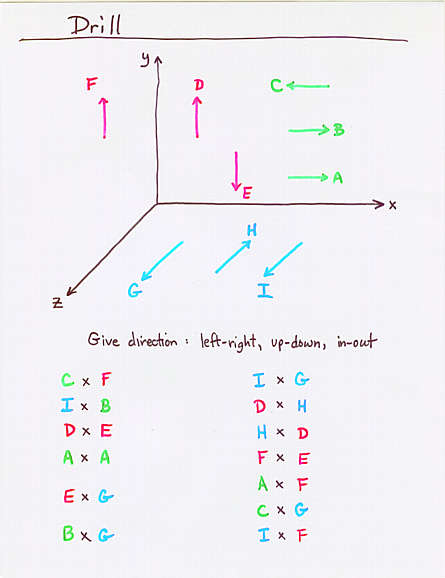 Drill
y
F D C
B
E A
x
H
z G I
Give direction : left-right, up-down, in-out
C × F
I × B
D × E
A × A
E × G
B × G
I × G
D × H
H × D
F × E
A × F
C × G
I × F